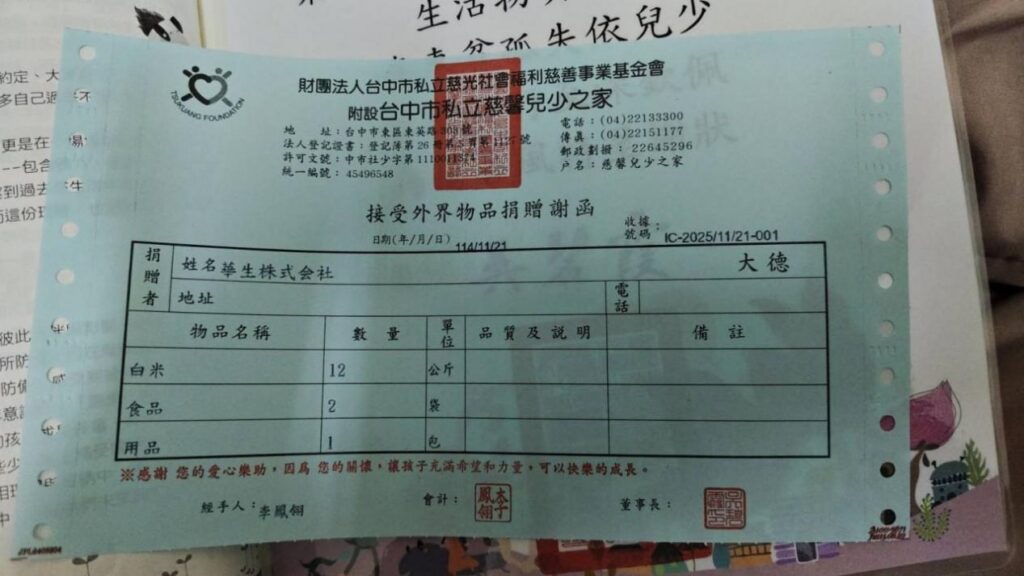 生活物
孤失依兒少
TSUKUANG FOUNDATION
財團法人台中市私立慈光社會福利慈善事業基金會
附設台中市私立慈馨兒少之家
地 址：台中市東區東英路308號
電話：(04)22133300
法人登記證書：登記簿第26冊第5頁第1127號
傳真：(04)22151177
許可文號：中市社少字第1110011374
郵政劃撥：22645296
統一編號：45496548
戶名：慈馨兒少之家
接受外界物品捐贈謝函
日期(年/月/日) 114/11/21
收據號碼：IC-2025/11/21-001
捐贈者
姓名 華生株式会社 大德
地址 電話
物品名稱 數量 單位 品質及說明 備註
白米 12 公斤
食品 2 袋
用品 1 包
※感謝 您的愛心樂助，因為 您的關懷，讓孩子充滿希望和力量，可以快樂的成長。
經手人：李鳳翎 會計： 董事長：
約定、大
多自己過
更是在
包含
到過去
彼此
所防
防備
意
的孩
些少
中